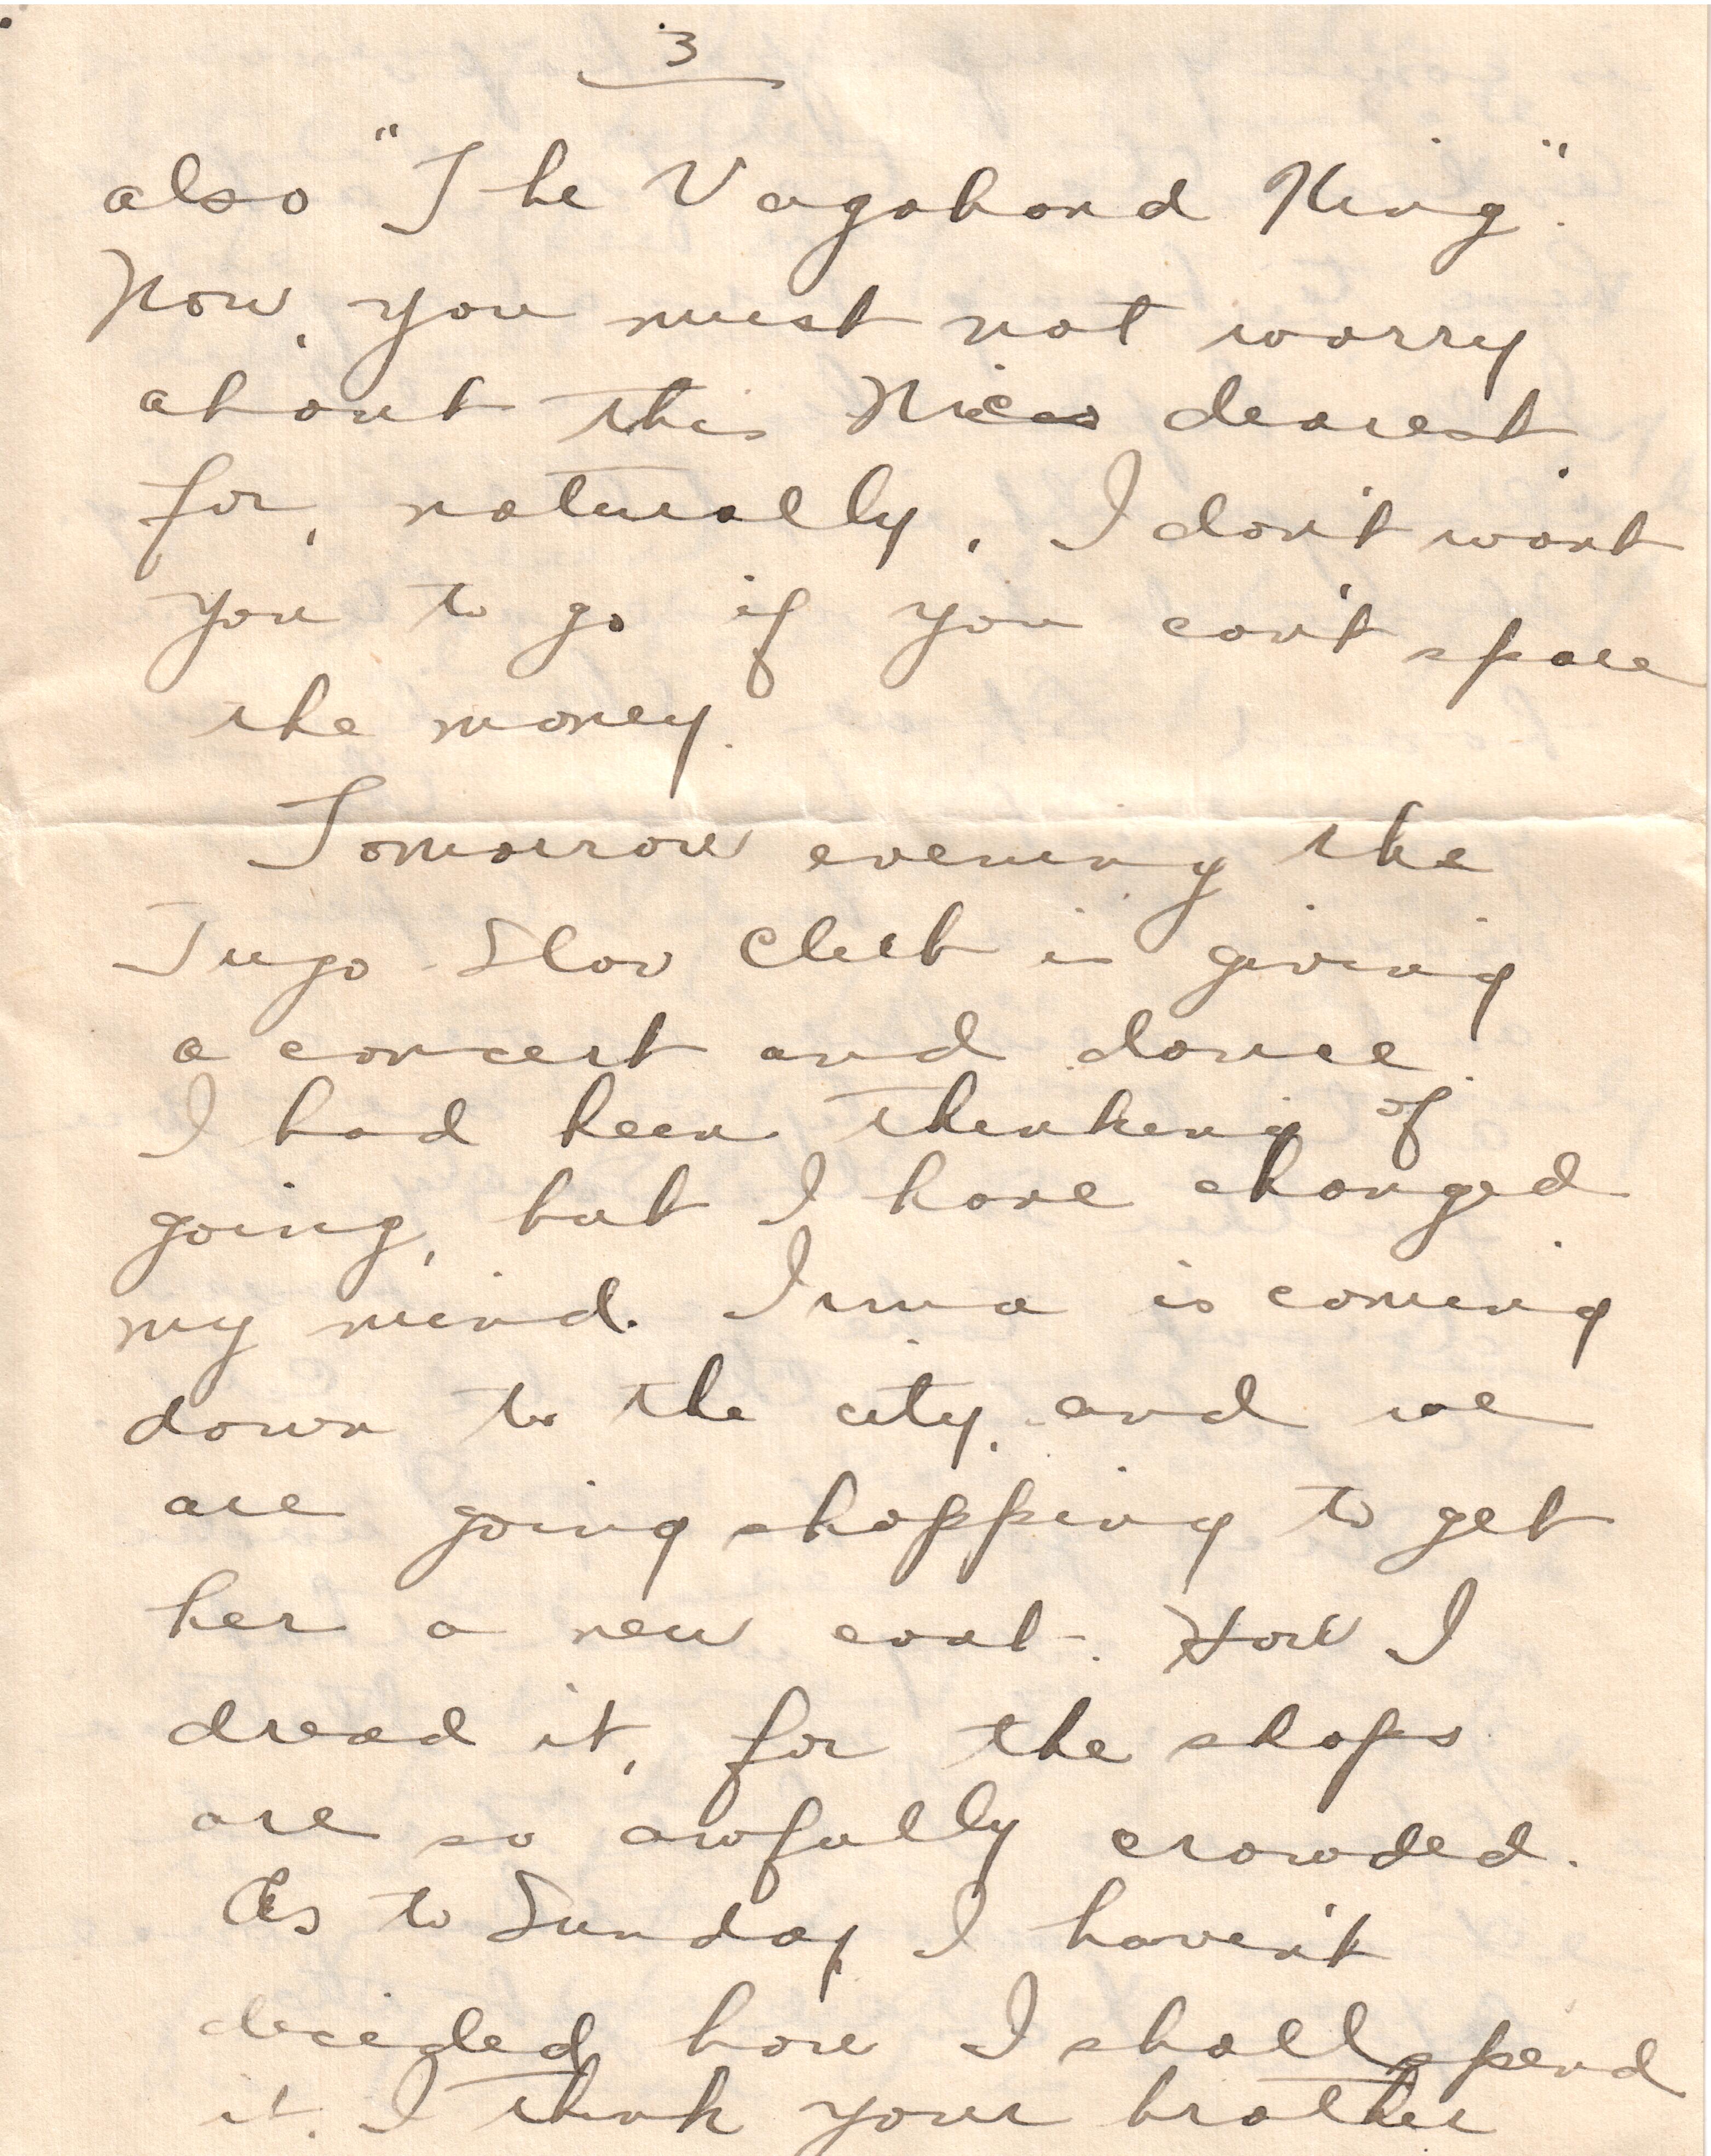 3
also "The Vagabond King".
Now, you must not worry
about this Nicas dearest,
for, naturally, I don't want
you to go if you can't spare
the money.
Tomorrow evening the
Jugo-Slav Club is giving
a concert and dance.
I had been thinking of
going, but I have changed
my mind. Irma is coming
down to the city, and we
are going shopping to get
her a new coat. How I
dread it, for the shops
are so awfully crowded.
As to Sunday I haven't
decided how I shall spend
it. I think your brother